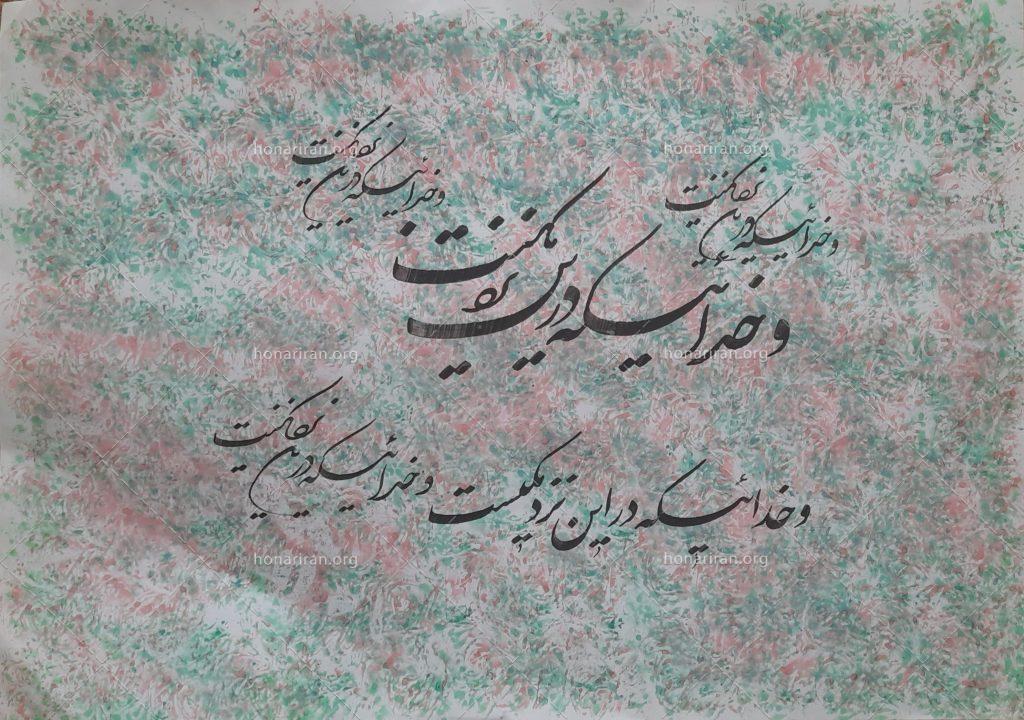 وخدائیکه دراین نزدیکیست
وخدائیکه دراین نزدیکیست
وخدائیکه دراین نزدیکیست
وخدائیکه دراین نزدیکیست
وخدائیکه دراین نزدیکیست
honariran.org
honariran.org
honariran.org
honariran.org
honariran.org
honariran.org